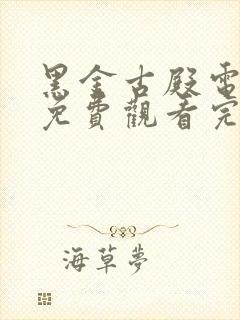 黑金古殿電
免費觀看完
海草夢